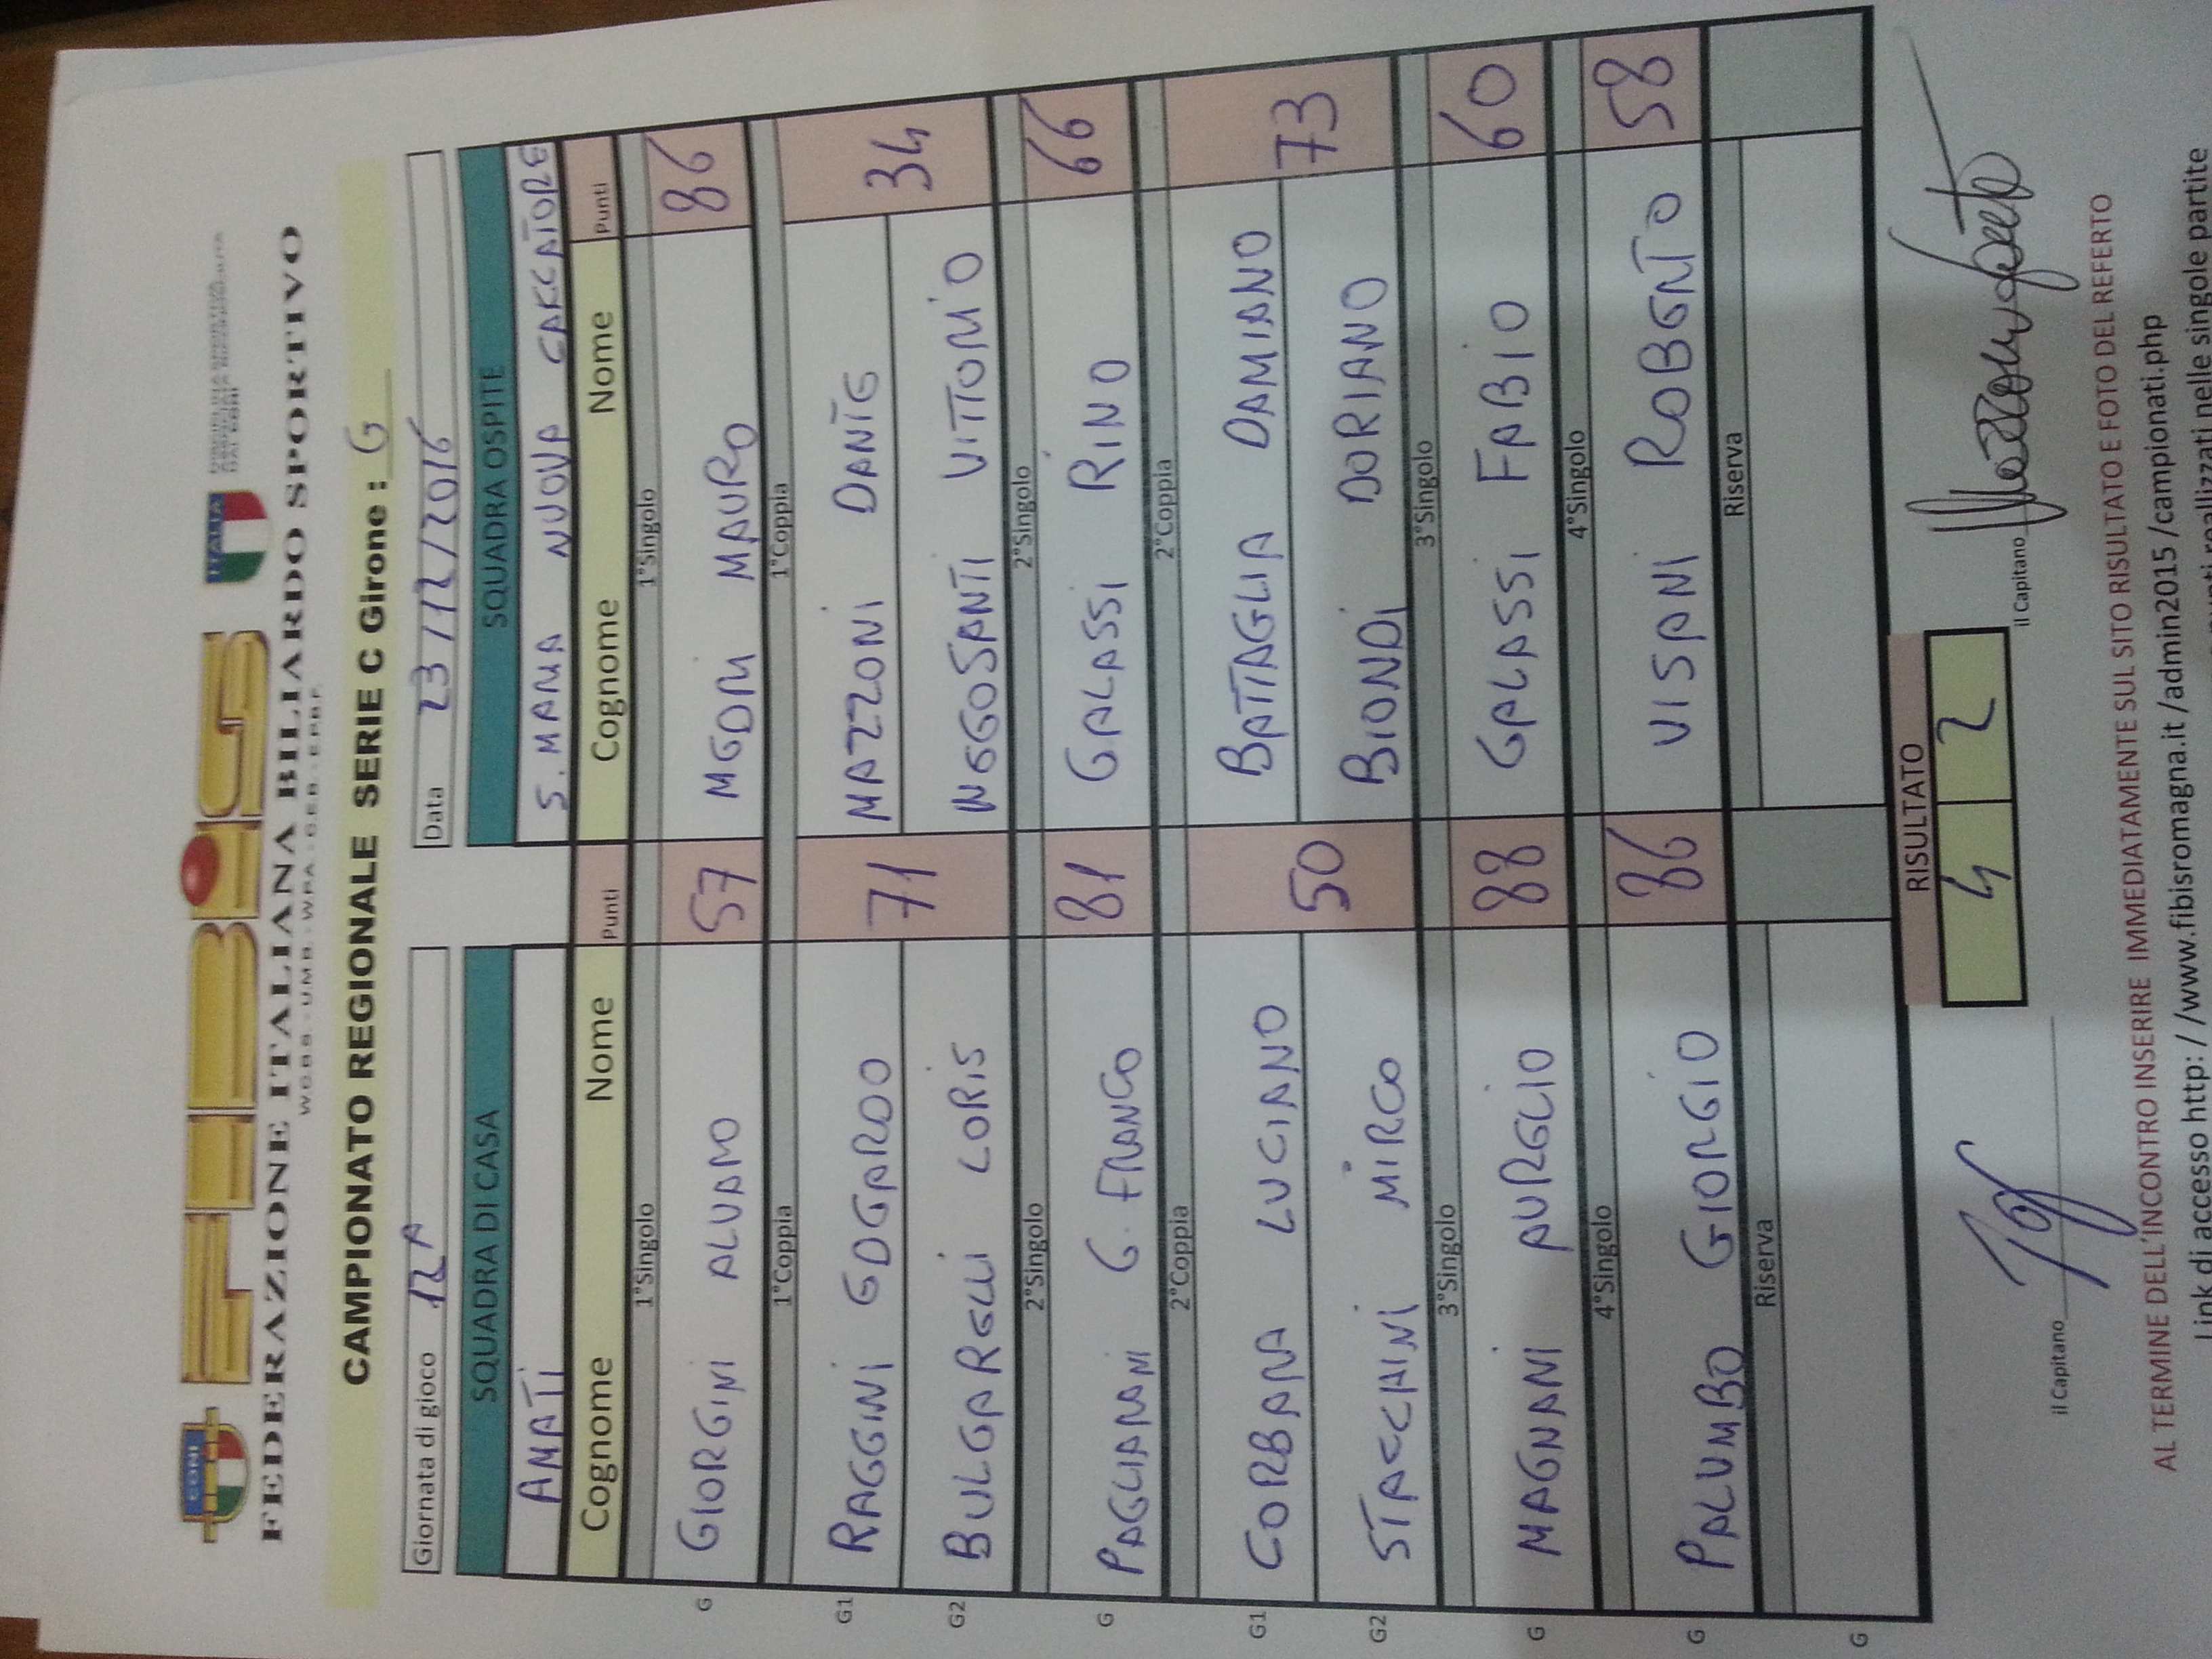 CONI
FIBiS
ITALIA
FEDERAZIONE ITALIANA BILIARDO SPORTIVO
W.C.B.S - U.M.B - W.P.A - C.E.B - E.P.B.F.
CAMPIONATO REGIONALE SERIE C Girone : G
Giornata di gioco 12A Data 23/12/2016
SQUADRA DI CASA SQUADRA OSPITE
AMATI S. MARIA NUOVA CARCATORE
Cognome Nome Punti Cognome Nome Punti
1°Singolo 1°Singolo
G GIORGINI ALVARO 57 MEDRI MAURO 86
1°Coppia 1°Coppia
G1 RAGGINI EDGARDO 71 MAZZONI DANTE 34
G2 BULGARELLI LORIS VITTORIO
2°Singolo 2°Singolo
G PAGLIARANI G. FRANCO 81 GALASSI RINO 66
2°Coppia 2°Coppia
G1 CORBARA LUCIANO 50 BATTAGLIA DAMIANO 73
G2 STACCHINI MIRCO BIONDI DORIANO
3°Singolo 3°Singolo
G MAGNANI AURELIO 88 GALASSI FABIO 60
4°Singolo 4°Singolo
G PALUMBO GIORGIO 86 VISANI ROBERTO 58
Riserva Riserva
G
RISULTATO
4 2
il Capitano il Capitano
AL TERMINE DELL'INCONTRO INSERIRE IMMEDIATAMENTE SUL SITO RISULTATO E FOTO DEL REFERTO
Link di accesso http: / /www.fibisromagna.it /admin2015 /campionati.php
punti realizzati nelle singole partite